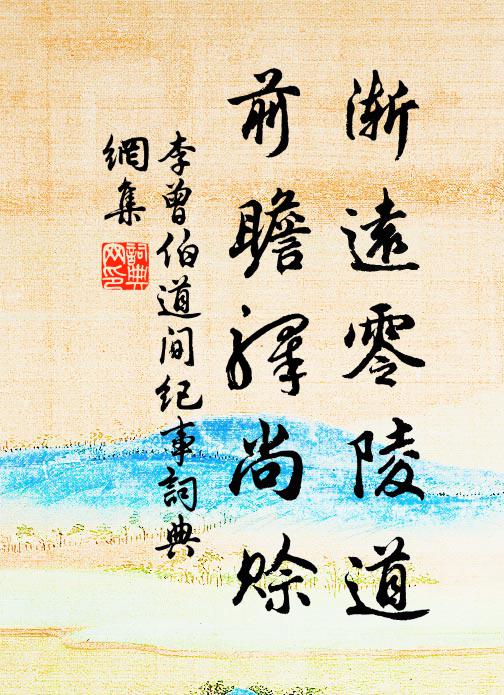 漸遠零陵道
前瞻驛尚賒
李曾伯道間紀事詞典
網集
詞典
网印